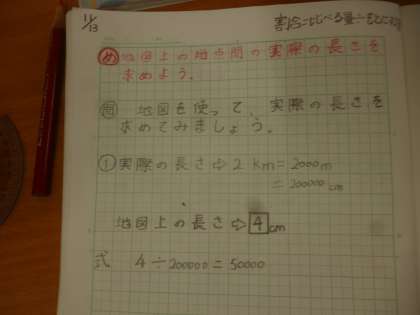 11/13
割合=比べる量÷もとにする
め 地図上の地点間の実際の長さを
求めよう。
問 地図を使って、実際の長さを
求めてみましょう。
① 実際の長さ⇨2km=2000m
=200000cm
地図上の長さ⇨4cm
式 4÷200000=50000